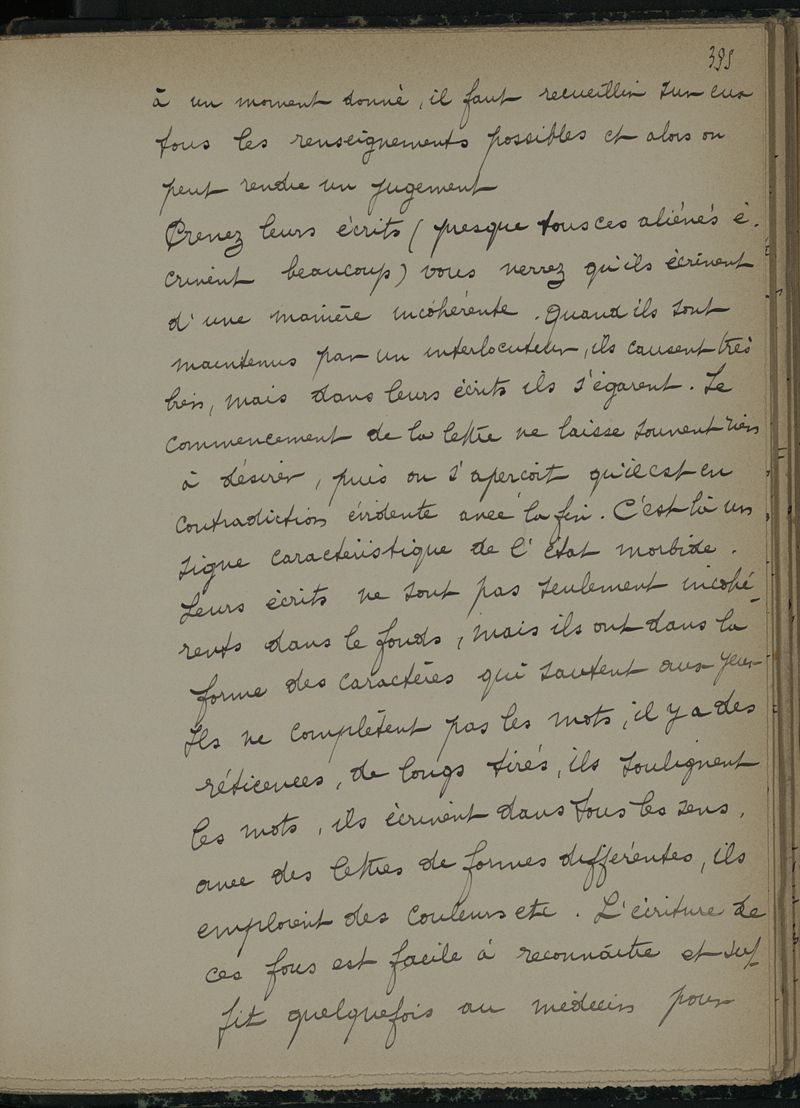 395
à un moment donné, il faut recueillir sur eux
tous les renseignements possibles et alors on
peut rendre un jugement
Prenez leurs écrits (presque tous ces aliénés é-
crivent beaucoup) vous verrez qu'ils écrivent
d'une manière incohérente. Quand ils sont
maintenus par un interlocuteur, ils causent très
bien, mais dans leurs écrits ils s'égarent. Le
commencement de la lettre ne laisse souvent rien
à désirer, puis on s'aperçoit qu'il est en
contradiction évidente avec la fin. C'est là un
signe caractéristique de l'état morbide.
Leurs écrits ne sont pas seulement incohé-
rents dans le fonds, mais ils ont dans la
forme des caractères qui sautent aux yeux
Ils ne complètent pas les mots, il y a des
réticences, de longs tirés, ils soulignent
les mots, ils écrivent dans tous les sens,
avec des lettres de formes différentes, ils
emploient des couleurs etc. L'écriture de
ces fous est facile à reconnaître et suf-
fit quelquefois au médecin pour